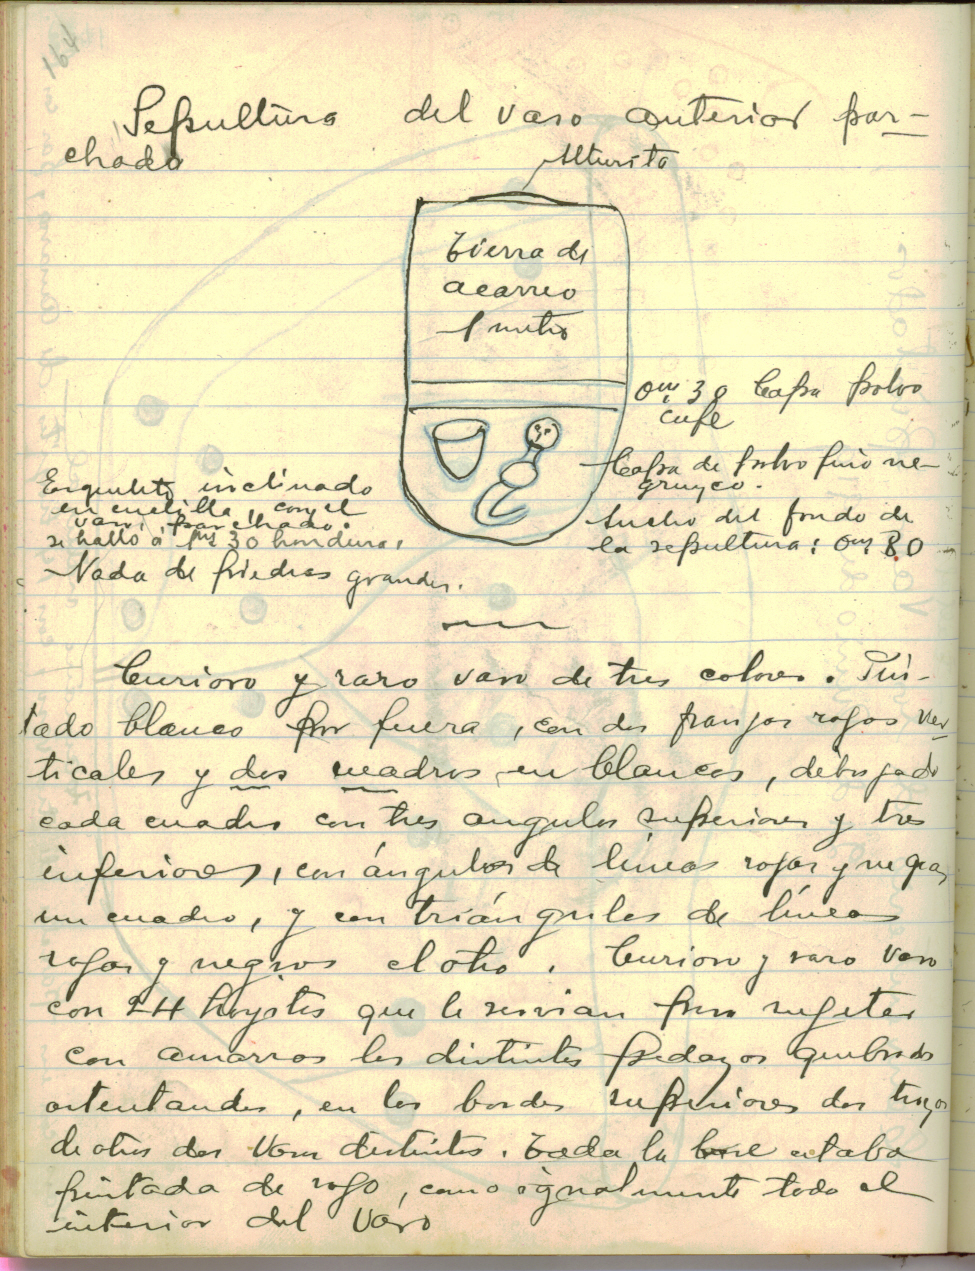 164
Sepultura del vaso anterior par-
chado
Alturita
Tierra de
acarreo
1 metro
0m, 30 Capa polvo
cafe
Capa de polvo fino ne-
gruzco.
Ancho del fondo de
la sepultura: 0m, 80
Esqueleto inclinado
en cuclilla, con el
vaso, parchado.
se halló a 1m, 30 hondura,
Nada de piedras grandes.
Curioso y raro vaso de tres colores. Pin-
tado blanco por fuera, con dos franjas rojas ver
ticales y dos cuadros en blancos, débujado
cada cuadro con tres angulos superiores y tres
inferiores, con ángulos de líneas rojas y negras
un cuadro, y con triángulos de líneas
rojas y negros el otro. Curioso y raro vaso
con 24 hoyitos que le servian para sugetar
con amarras los distintos pedazos quebrados
ostentando, en los bordes superiores dos trozos
de otros dos vasos distintos. Toda la base estaba
pintada de rojo, como igualmente todo el
interior del vaso